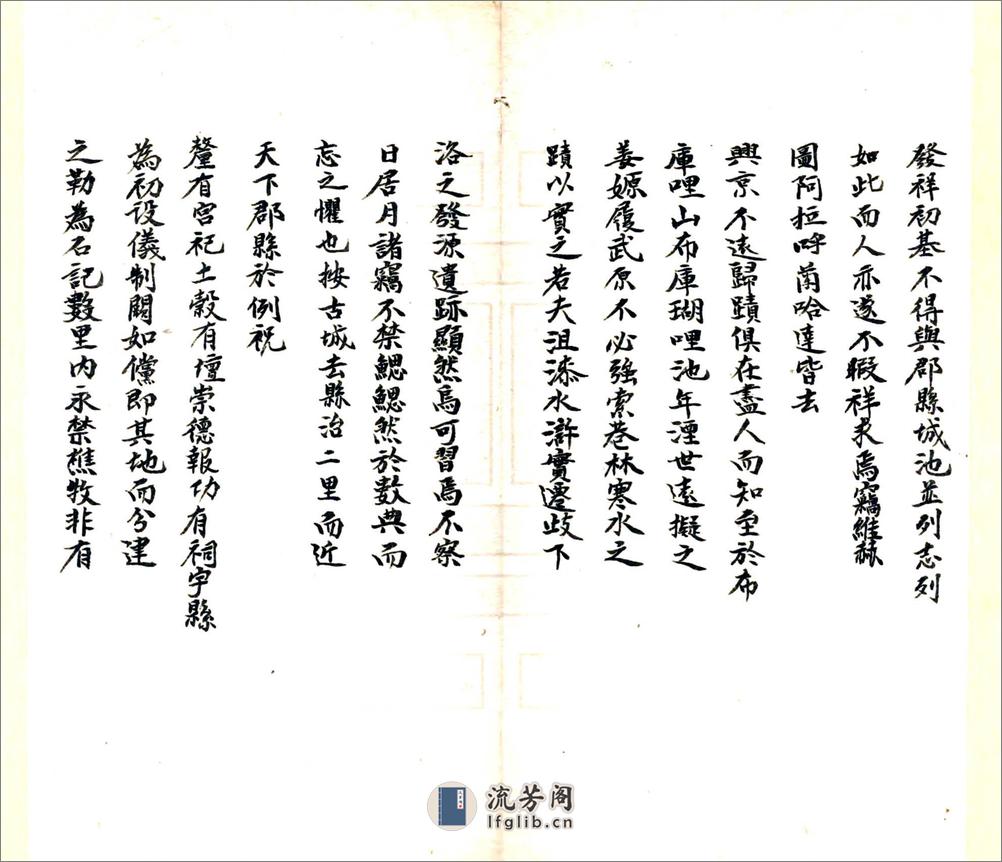 發祥初基不得與郡縣城池並列志列
如此而人亦遂不暇祥求焉竊維赫
圖阿拉呼蘭哈達皆去
興京不遠歸蹟俱在盡人而知至於布
庫哩山布庫瑚哩池年湮世遠擬之
姜嫄履武原不必強索巷林寒水之
蹟以實之若夫沮漆水滸實遷歧下
洛之發源遺跡顯然焉可習焉不察
日居月諸竊不禁鰓鰓然於數典而
忘之懼也按古城去縣治二里而近
天下郡縣於例祝
釐有宮祀土穀有壇崇德報功有祠宇縣
為初設儀制闕如儻即其地而分建
之勒為石記數里內永禁樵牧非有
流芳阁
lfglib.cn